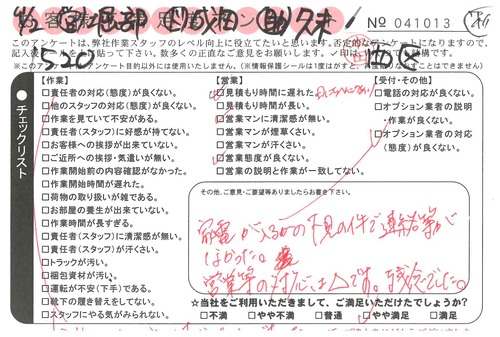 No 041013
このアンケートは、弊社作業スタッフのレベル向上に役立てたいと思います。否定的なアンケートになりますので、
S20
西区
チェックリスト
【作業】
□責任者の対応(態度)が良くない。
□他のスタッフの対応(態度)が良くない。
□作業を見ていて不安がある。
□責任者(スタッフ)に好感が持てない。
□お客様への挨拶が出来ていない。
□ご近所への挨拶・気遣いが無い。
□作業開始前の内容確認がなかった。
□作業開始時間が遅れた。
□荷物の取り扱いが雑である。
□お部屋の養生が出来ていない。
□作業時間が長すぎる。
□責任者(スタッフ)に清潔感が無い。
□責任者(スタッフ)が汗くさい。
□トラックが汚い。
□梱包資材が汚い。
□運転が不安(下手)である。
□靴下の履き替えをしてない。
□スタッフにやる気がみられない。
【営業】
□見積もり時間に遅れた。
□見積もり時間が長い。
□営業マンに清潔感が無い。
□営業マンが煙草くさい。
□営業マンが汗くさい。
□営業態度が良くない。
□営業の説明と作業が一致してない。
【受付・その他】
□電話の対応が良くない。
□オプション業者の説明
・作業が良くない。
□オプション業者の対応
(態度)が良くない。
その他、ご意見・ご要望等ありましたらお書き下さい。
家電が入るかの下見の件で連絡等が
なかった。
営業等の対応は△です。残念でした。
☆当社をご利用いただきまして、ご満足いただけたでしょうか?
□不満 □やや不満 □普通 □やや満足 □満足